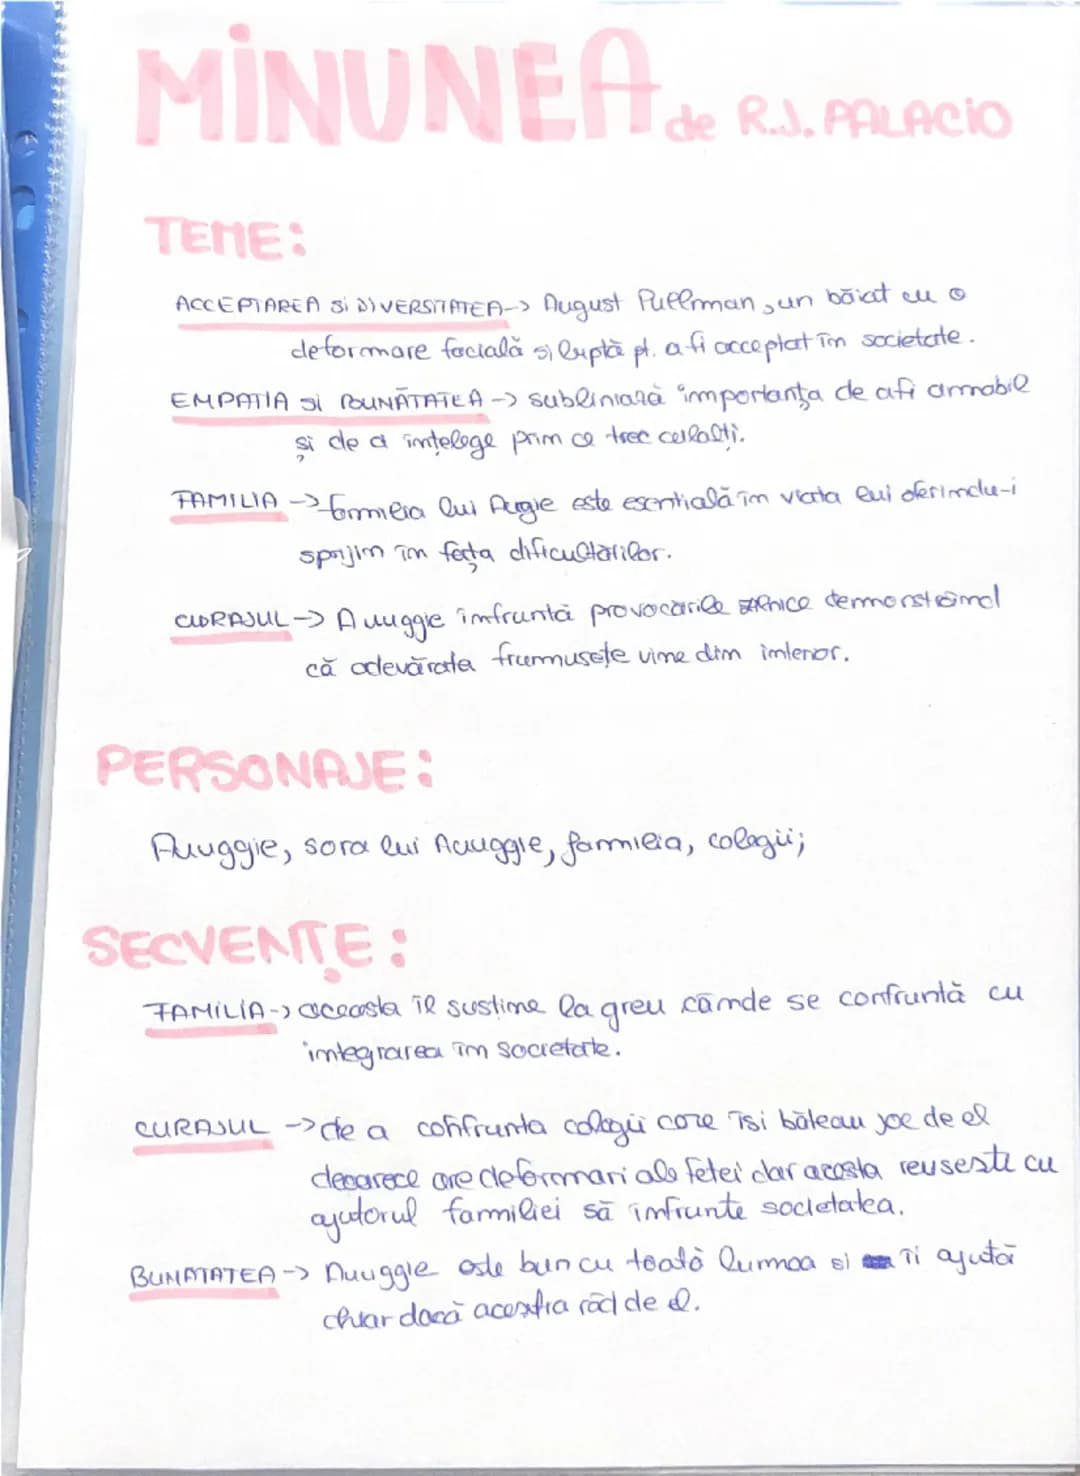 MINUNEA de R.J. PALACIO
TEME:
ACCEPTAREA Si DIVERSITATEA -> August Pullman, un băiat cu o
deformare facială și luptă pt. a fi acceptat în societate.
EMPATIA SI BUNĂTATEA -> subliniază importanța de a fi amabil
și de a înțelege prin ce trec ceilalți.
FAMILIA -> familia lui Augie este esentială în viata lui oferindu-i
sprijin în fața dificultărilor.
CURAJUL -> Auuggie înfruntă provocările zilnice demonstrând
că adevărata frumusețe vine din interior.
PERSONAJE:
Auuggie, sora lui Auuggie, familia, colegii;
SECVENȚE:
FAMILIA -> aceasta îl sustine la greu cânde se confruntă cu
integrarea în societate.
CURAJUL -> de a confrunta colegii care îsi băteau joc de el
deoarece are deformari ale fetei dar acesta reuseste cu
ajutorul familiei să înfrunte societatea.
BUNATATEA -> Auuggie este bun cu toată lumea si îi ajută
chiar dacă aceștia râd de el.